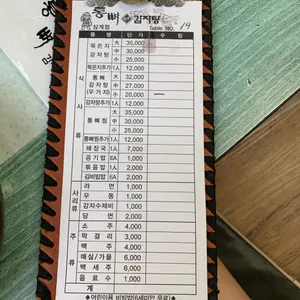 통뼈 감자탕
삼계점 Table NO. 19
품 명 단 가 수 량
식사류
묵은지감자탕 大 35,000
中 30,000
小 25,000
묵은지추가 1人 12,000
통뼈감자탕(우거지) 大 32,000
中 27,000
小 20,000 一
감자탕추가 1人 12,000
통뼈찜 大 35,000
中 30,000
小 25,000
통뼈찜추가 1人 12,000
해장국 1人 7,000
공기밥 6A 1,000
볶음밥 6A 2,000
김비빔밥 6A 2,000
사리류
라 면 1,000
우 동 1,000
감자수제비 1,000
당 면 2,000
주류
소 주 4,000
막걸리 3,000
맥 주 4,000
매실/가을 6,000
백세주 6,000
음료수 1,000
계
◆어린이용 비빔밥(6세미만 무료)◆